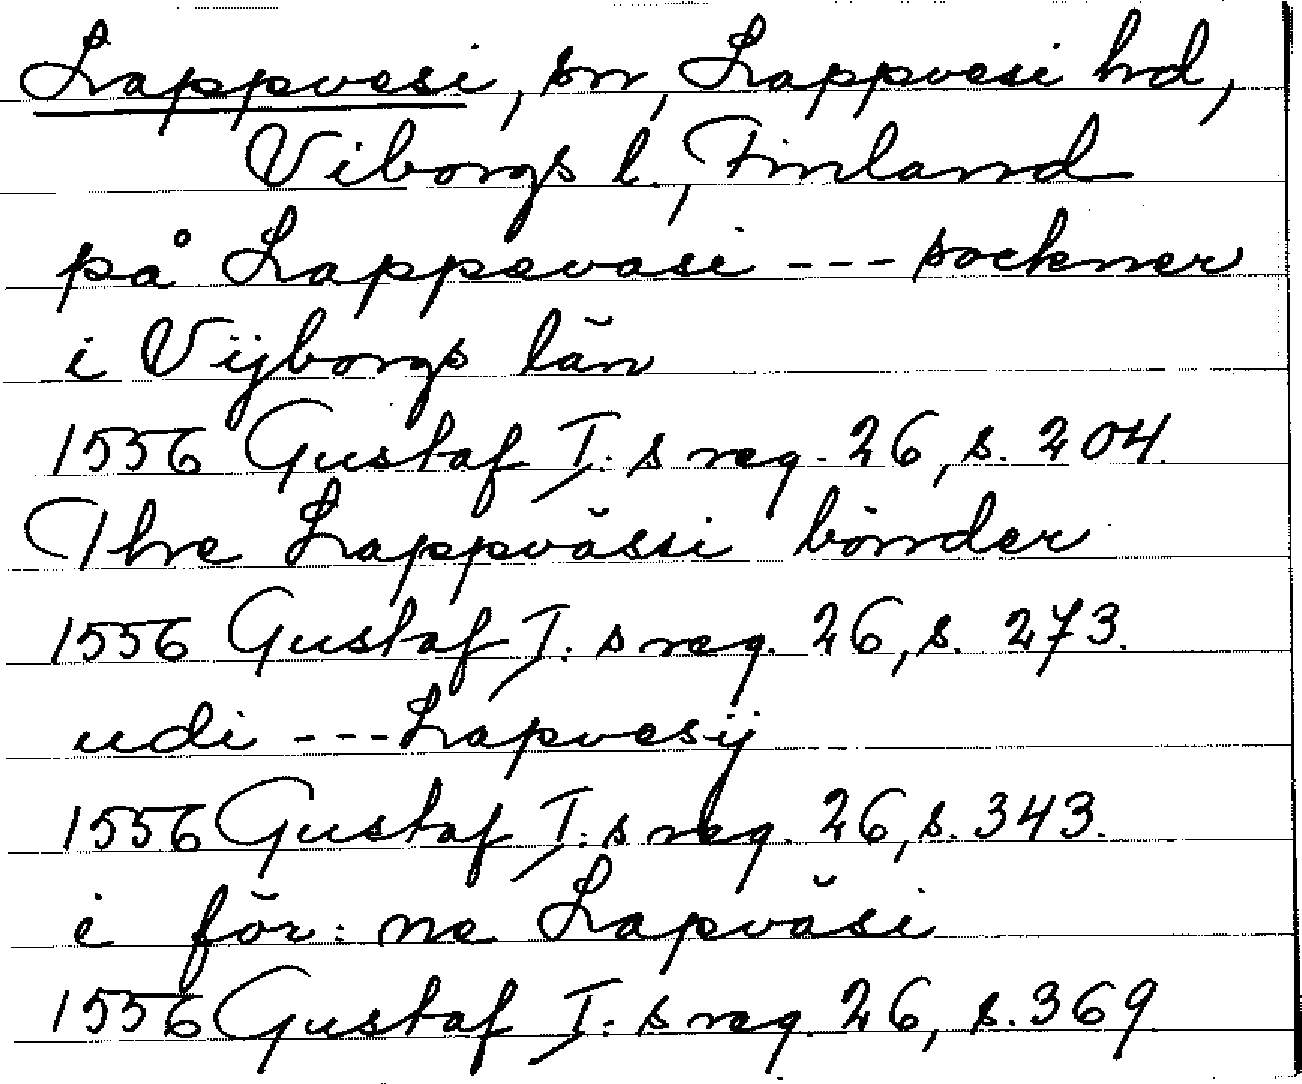 Lappvesi, sn, Lappvesi hd,
Viborgs l., Finland
på Lappevasi --- sockner
i Vijborgs län
1556 Gustaf I:s reg. 26, s. 204.
The Lappvässi bönder
1556 Gustaf I:s reg. 26, s. 273.
udi --- Lapvesij
1556 Gustaf I:s reg. 26, s. 343.
i för:ne Lapväsi
1556 Gustaf I:s reg. 26, s. 369